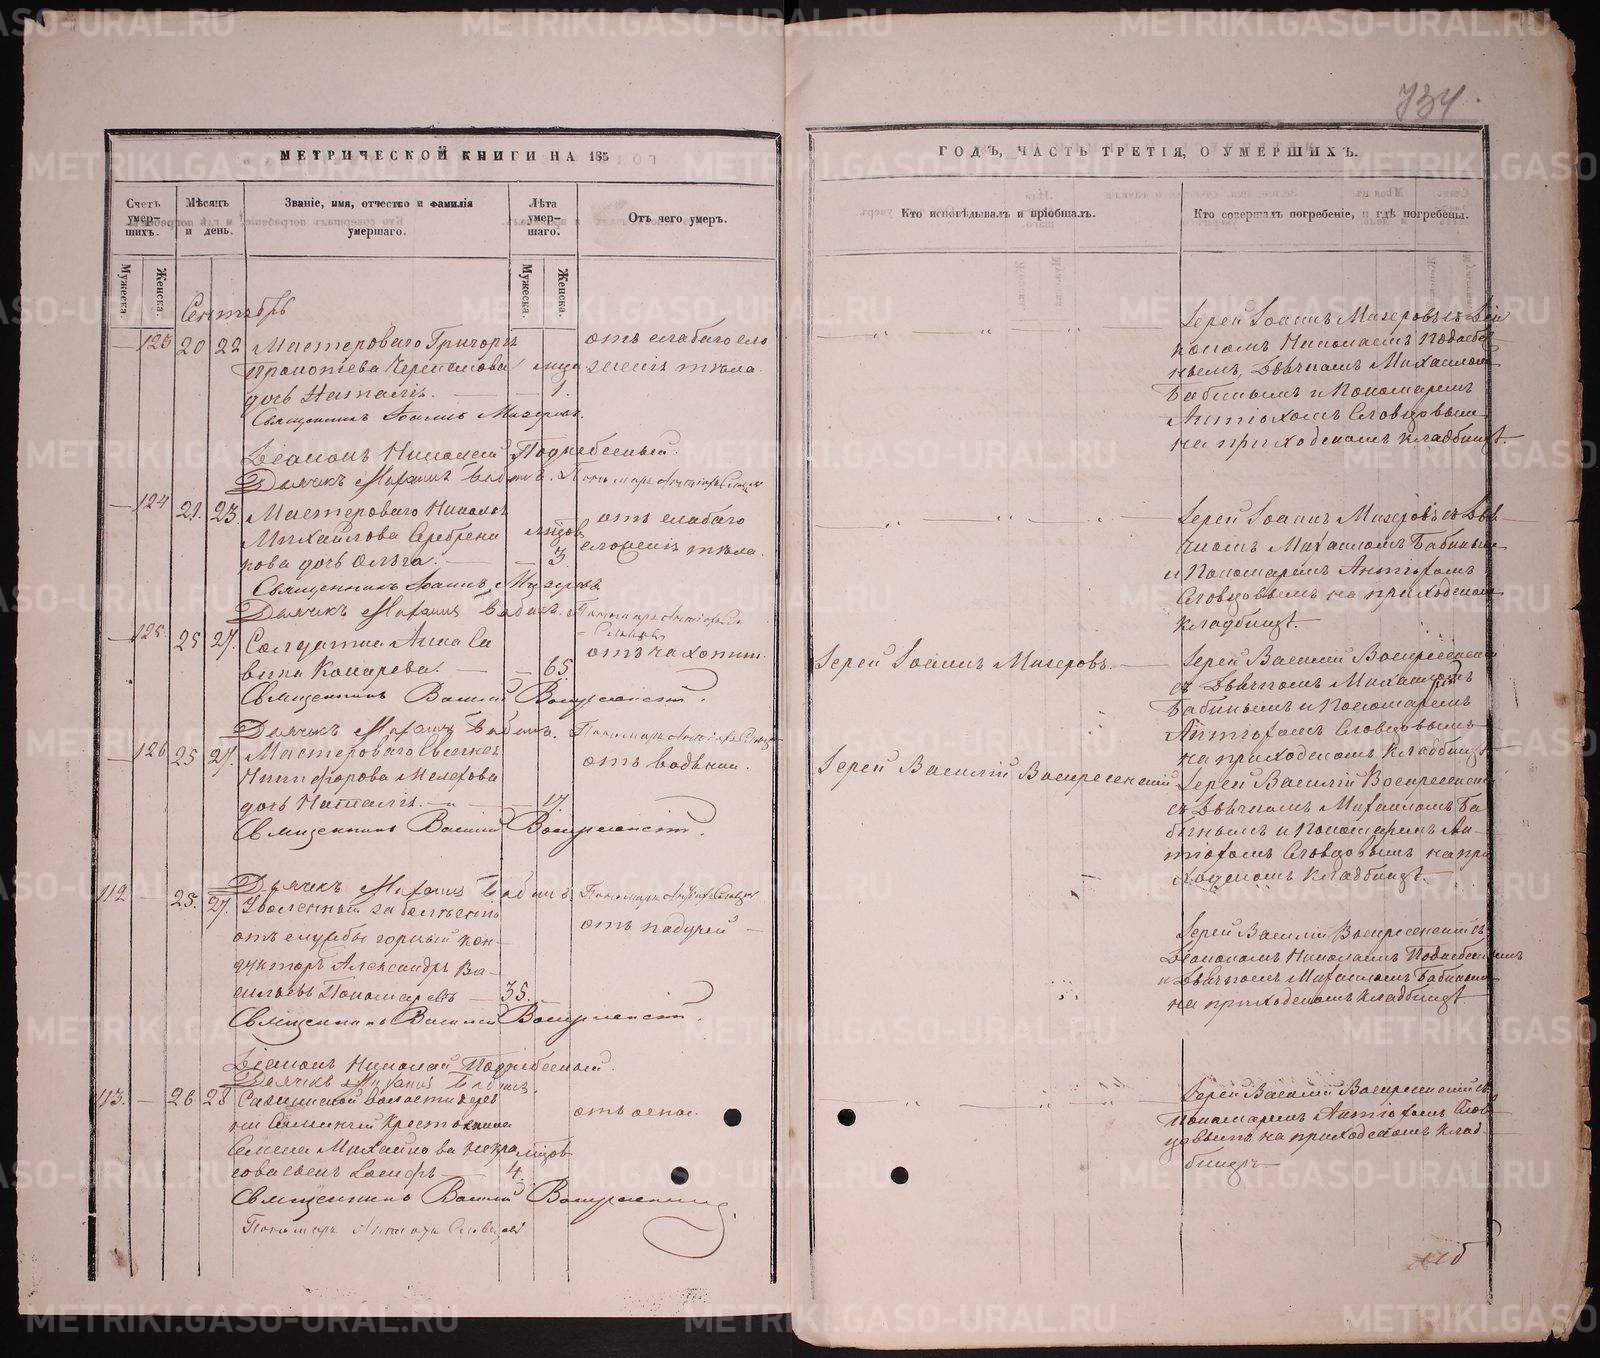 734.
МЕТРИЧЕСКОЙ КНИГИ НА 185
ГОДЪ, ЧАСТЬ ТРЕТІЯ, О УМЕРШИХЪ.
Счетъ умер-
шихъ.
Мѣсяцъ
и день.
Званіе, имя, отчество и фамилія
умершаго.
Лѣта
умер-
шаго.
Отъ чего умеръ.
Кто исповѣдывалъ и пріобщалъ.
Кто совершалъ погребеніе, и гдѣ погребены.
Мужеска.
Женска.
Мужеска.
Женска.
Сентябрь
20 22 Мастероваго Григорья
дочь Наталія. 1.
отъ слабаго сло
женія тѣла.
Священникъ Іоаннъ Мизеровъ.
Діаконъ Николай Поднебесный.
Дьячекъ Михаилъ Бабинъ.
Іерей Іоаннъ Мизеровъ съ Діа
кономъ Николаемъ Поднебес
нымъ, Дьячкомъ Михаиломъ
Бабинымъ и Пономаремъ
Антіохомъ Словцовымъ
на приходскомъ кладбищѣ.
124 21. 23. Мастероваго Николая
Михайлова Серебрени
кова дочь Ольга. 3
отъ слабаго
сложенія тѣла.
Священникъ Іоаннъ Мизеровъ
Дьячекъ Михаилъ Бабинъ.
Іерей Іоаннъ Мизеровъ съ Дья
чкомъ Михаиломъ Бабинымъ
и Пономаремъ Антіохомъ
Словцовымъ на приходскомъ
кладбищѣ.
125. 25 27. Солдатка Анна Са
вина Комарева. 65.
отъ чахотки.
Священникъ Василій Воскресенскій.
Дьячекъ Михаилъ Бабинъ.
Іерей Іоаннъ Мизеровъ.
Іерей Василій Воскресенскій
съ Дьячкомъ Михаиломъ
Бабинымъ и Пономаремъ
Антіохомъ Словцовымъ
на приходскомъ кладбищѣ.
126 25 27. Мастероваго
Никифорова Мелехова
дочь Наталія. 17.
отъ водянки.
Священникъ Василій Воскресенскій.
Дьячекъ Михаилъ Бабинъ.
Іерей Василій Воскресенскій
Іерей Василій Воскресенскій
съ Дьячкомъ Михаиломъ Ба
бинымъ и Пономаремъ Ан-
тіохомъ Словцовымъ на при
ходскомъ кладбищѣ.
112 25. 27. Уволенный за болѣзнію
отъ службы горный кон-
дукторъ Александръ Ва-
сильевъ Пономаревъ 35.
отъ падучей
Священникъ Василій Воскресенскій.
Діаконъ Николай Поднебесный.
Дьячекъ Михаилъ Бабинъ.
Іерей Василій Воскресенскій съ
Діакономъ Николаемъ Поднебеснымъ
и Дьячкомъ Михаиломъ Бабинымъ
на приходскомъ кладбищѣ
113. 26 28
Семена Михайлова Некра
сова сынъ 4.
отъ оспы.
Священникъ Василій Воскресенскій
Пономарь Антіохъ Словцовъ
Іерей Василій Воскресенскій съ
Пономаремъ Антіохомъ Слов
цовымъ на приходскомъ клад
бищѣ
METRIKI.GASO-URAL.RU